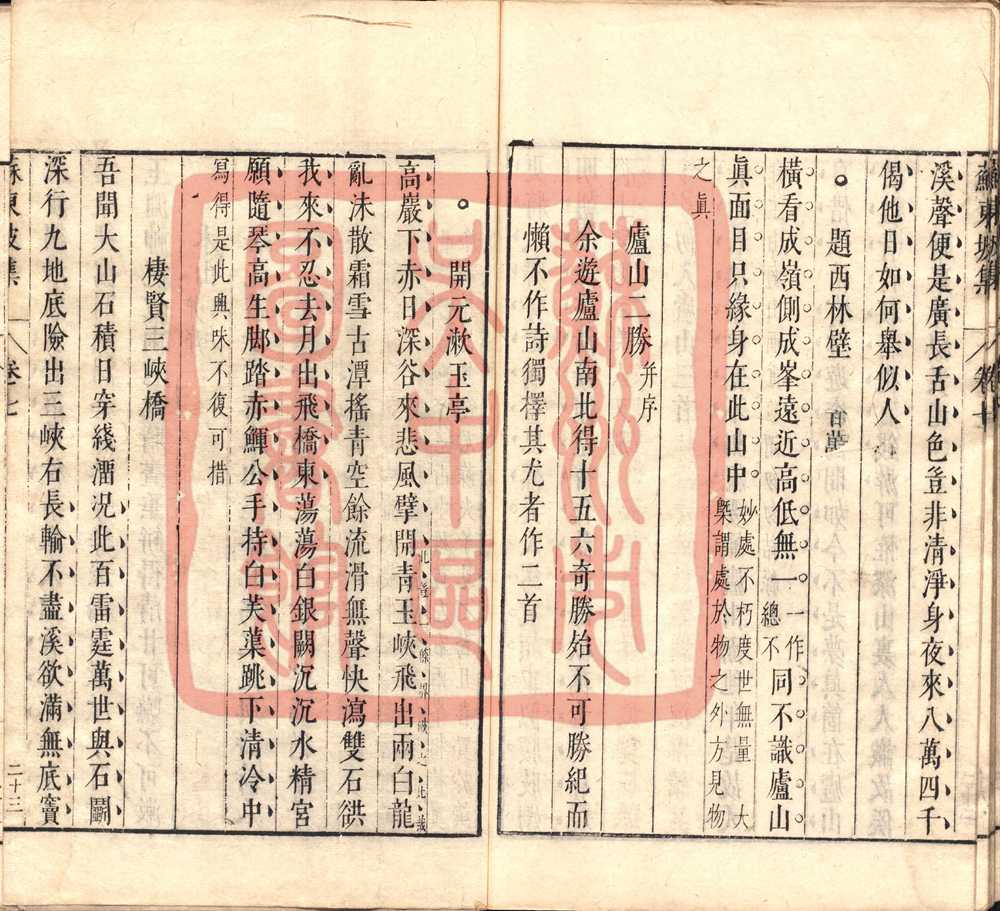 蘇東坡集 卷七
溪聲便是廣長舌山色豈非清淨身夜來八萬四千
偈他日如何舉似人
題西林壁
橫看成嶺側成峯遠近高低無一一作總不同不識廬山
眞面目只緣身在此山中妙處不朽度世無量大槩謂處於物之外方見物
之眞
廬山二勝并序
余遊廬山南北得十五六奇勝殆不可勝紀而
懶不作詩獨擇其尤者作二首
開元漱玉亭
高巖下赤日深谷來悲風擘開青玉峽飛出兩白龍
亂沫散霜雪古潭搖青空餘流滑無聲快瀉雙石谼
我來不忍去月出飛橋東蕩蕩白銀闕沉沉水精宮
願隨琴高生脚踏赤鯶公手持白芙蕖跳下清泠中
寫得是此興味不復可措
棲賢三峽橋
吾聞大山石積日穿綫溜况此百雷霆萬世與石鬭
深行九地底險出三峽右長輸不盡溪欲滿無底竇
蘇東坡集 卷七 二十三
蘇州市
吳中區
圖書館